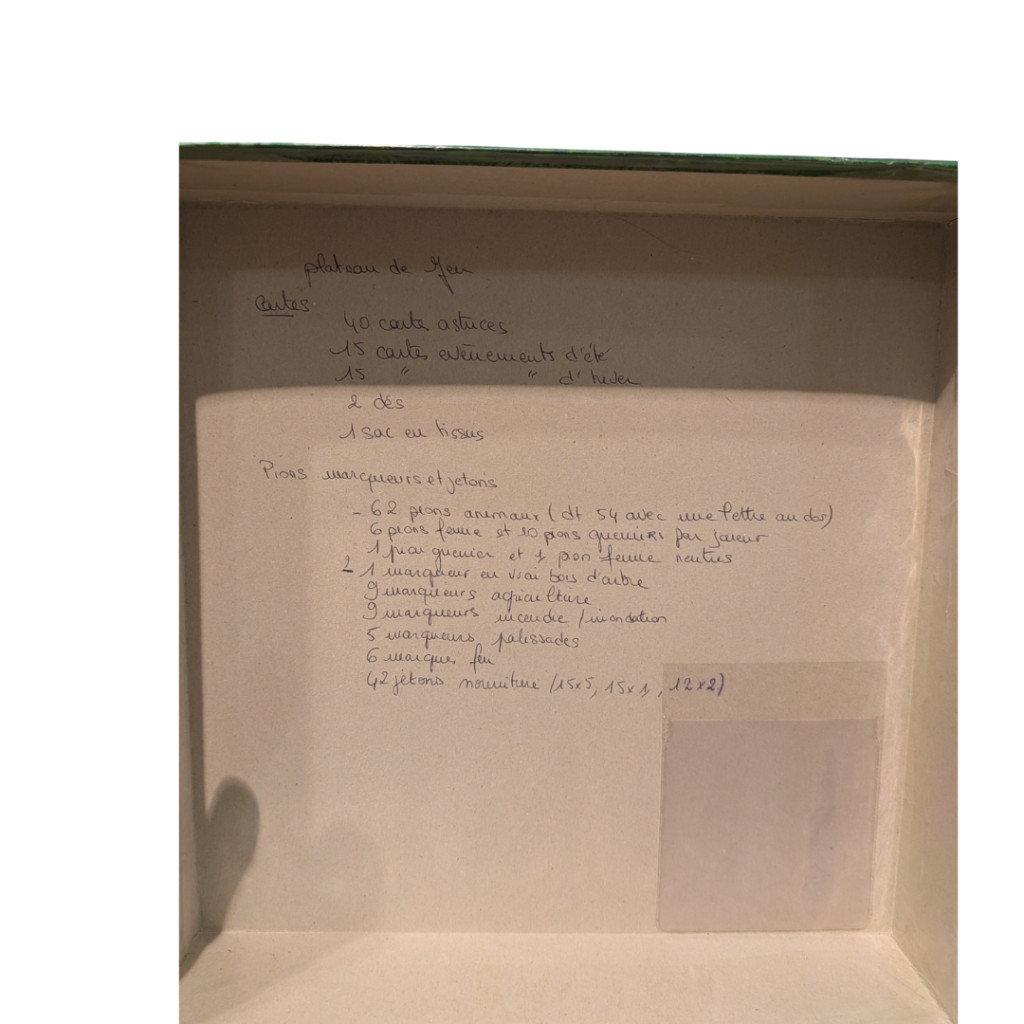 plateau de Jeu
Cartes
40 cartes astuces
15 cartes evènements d'été
15 " " d'hiver
2 dés
1 sac en tissus
Pions marqueurs et jetons
- 62 pions animaux (dt 54 avec une lettre au dos)
6 pions femme et 10 pions guerriers par joueur
1 pion guerrier et 1 pion femme neutres
2 1 marqueur en vrai bois d'arbre
9 marqueurs agriculture
9 marqueurs incendie / inondation
5 marqueurs palissades
6 marques feu
42 jetons nourriture (15x5, 15x1, 12x2)